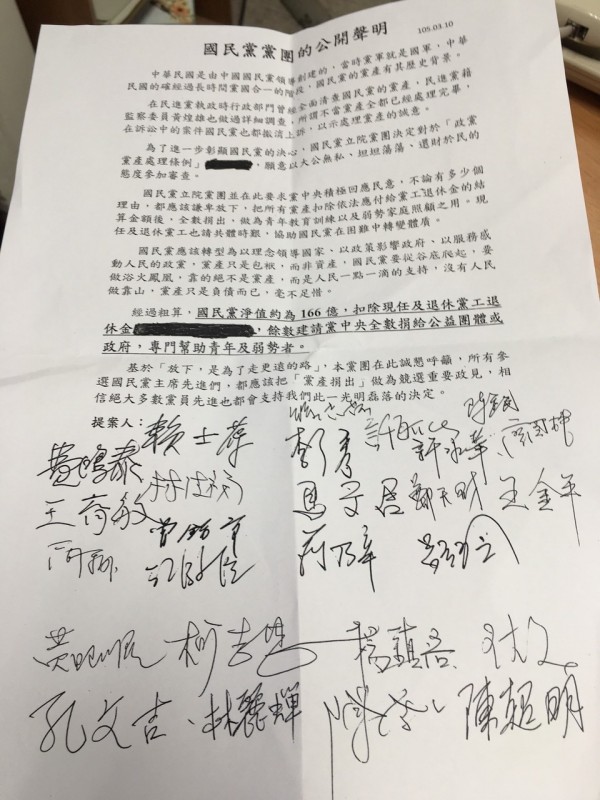 105.03.10
國民黨黨團的公開聲明
中華民國是由中國國民黨領導創建的,當時黨軍就是國軍,中華
民國的確經過長時間黨國合一的階段,國民黨的黨產有其歷史背景。
在民進黨執政時行政部門曾經全面清查國民黨的黨產,民進黨籍
監察委員黃煌雄也做過詳細調查,所謂不當黨產全部已經處理完畢,
在訴訟中的案件國民黨也都撤消上訴,以示處理黨產的誠意。
為了進一步彰顯國民黨的決心,國民黨立院黨團決定對於「政黨
黨產處理條例」,願意以大公無私、坦坦蕩蕩、還財於民的
態度參加審查。
國民黨立院黨團並在此要求黨中央積極回應民意,不論有多少個
理由,都應該謙卑放下,把所有黨產扣除依法應付給黨工退休金的結
算金額後,全數捐出,做為青年教育訓練以及弱勢家庭照顧之用。現
任及退休黨工也請共體時艱,協助國民黨在困難中轉變體質。
國民黨應該轉型為以理念領導國家、以政策影響政府、以服務感
動人民的政黨,黨產只是包袱,而非資產,國民黨要從谷底爬起,要
做浴火鳳凰,靠的絕不是黨產,而是人民一點一滴的支持,沒有人民
做靠山,黨產只是負債而已,毫不足惜。
經過粗算,國民黨淨值約為 166 億,扣除現任及退休黨工退
休金,餘數建請黨中央全數捐給公益團體或
政府,專門幫助青年及弱勢者。
基於「放下,是為了走更遠的路」,本黨團在此誠懇呼籲,所有參
選國民黨主席先進們,都應該把「黨產捐出」做為競選重要政見,相
信絕大多數黨員先進也都會支持我們此一光明磊落的決定。
提案人:
費鴻泰 賴士葆
王育敏
馬文君 鄭天財 王金平
柯志恩 楊鎮浯
孔文吉 林麗蟬 陳超明